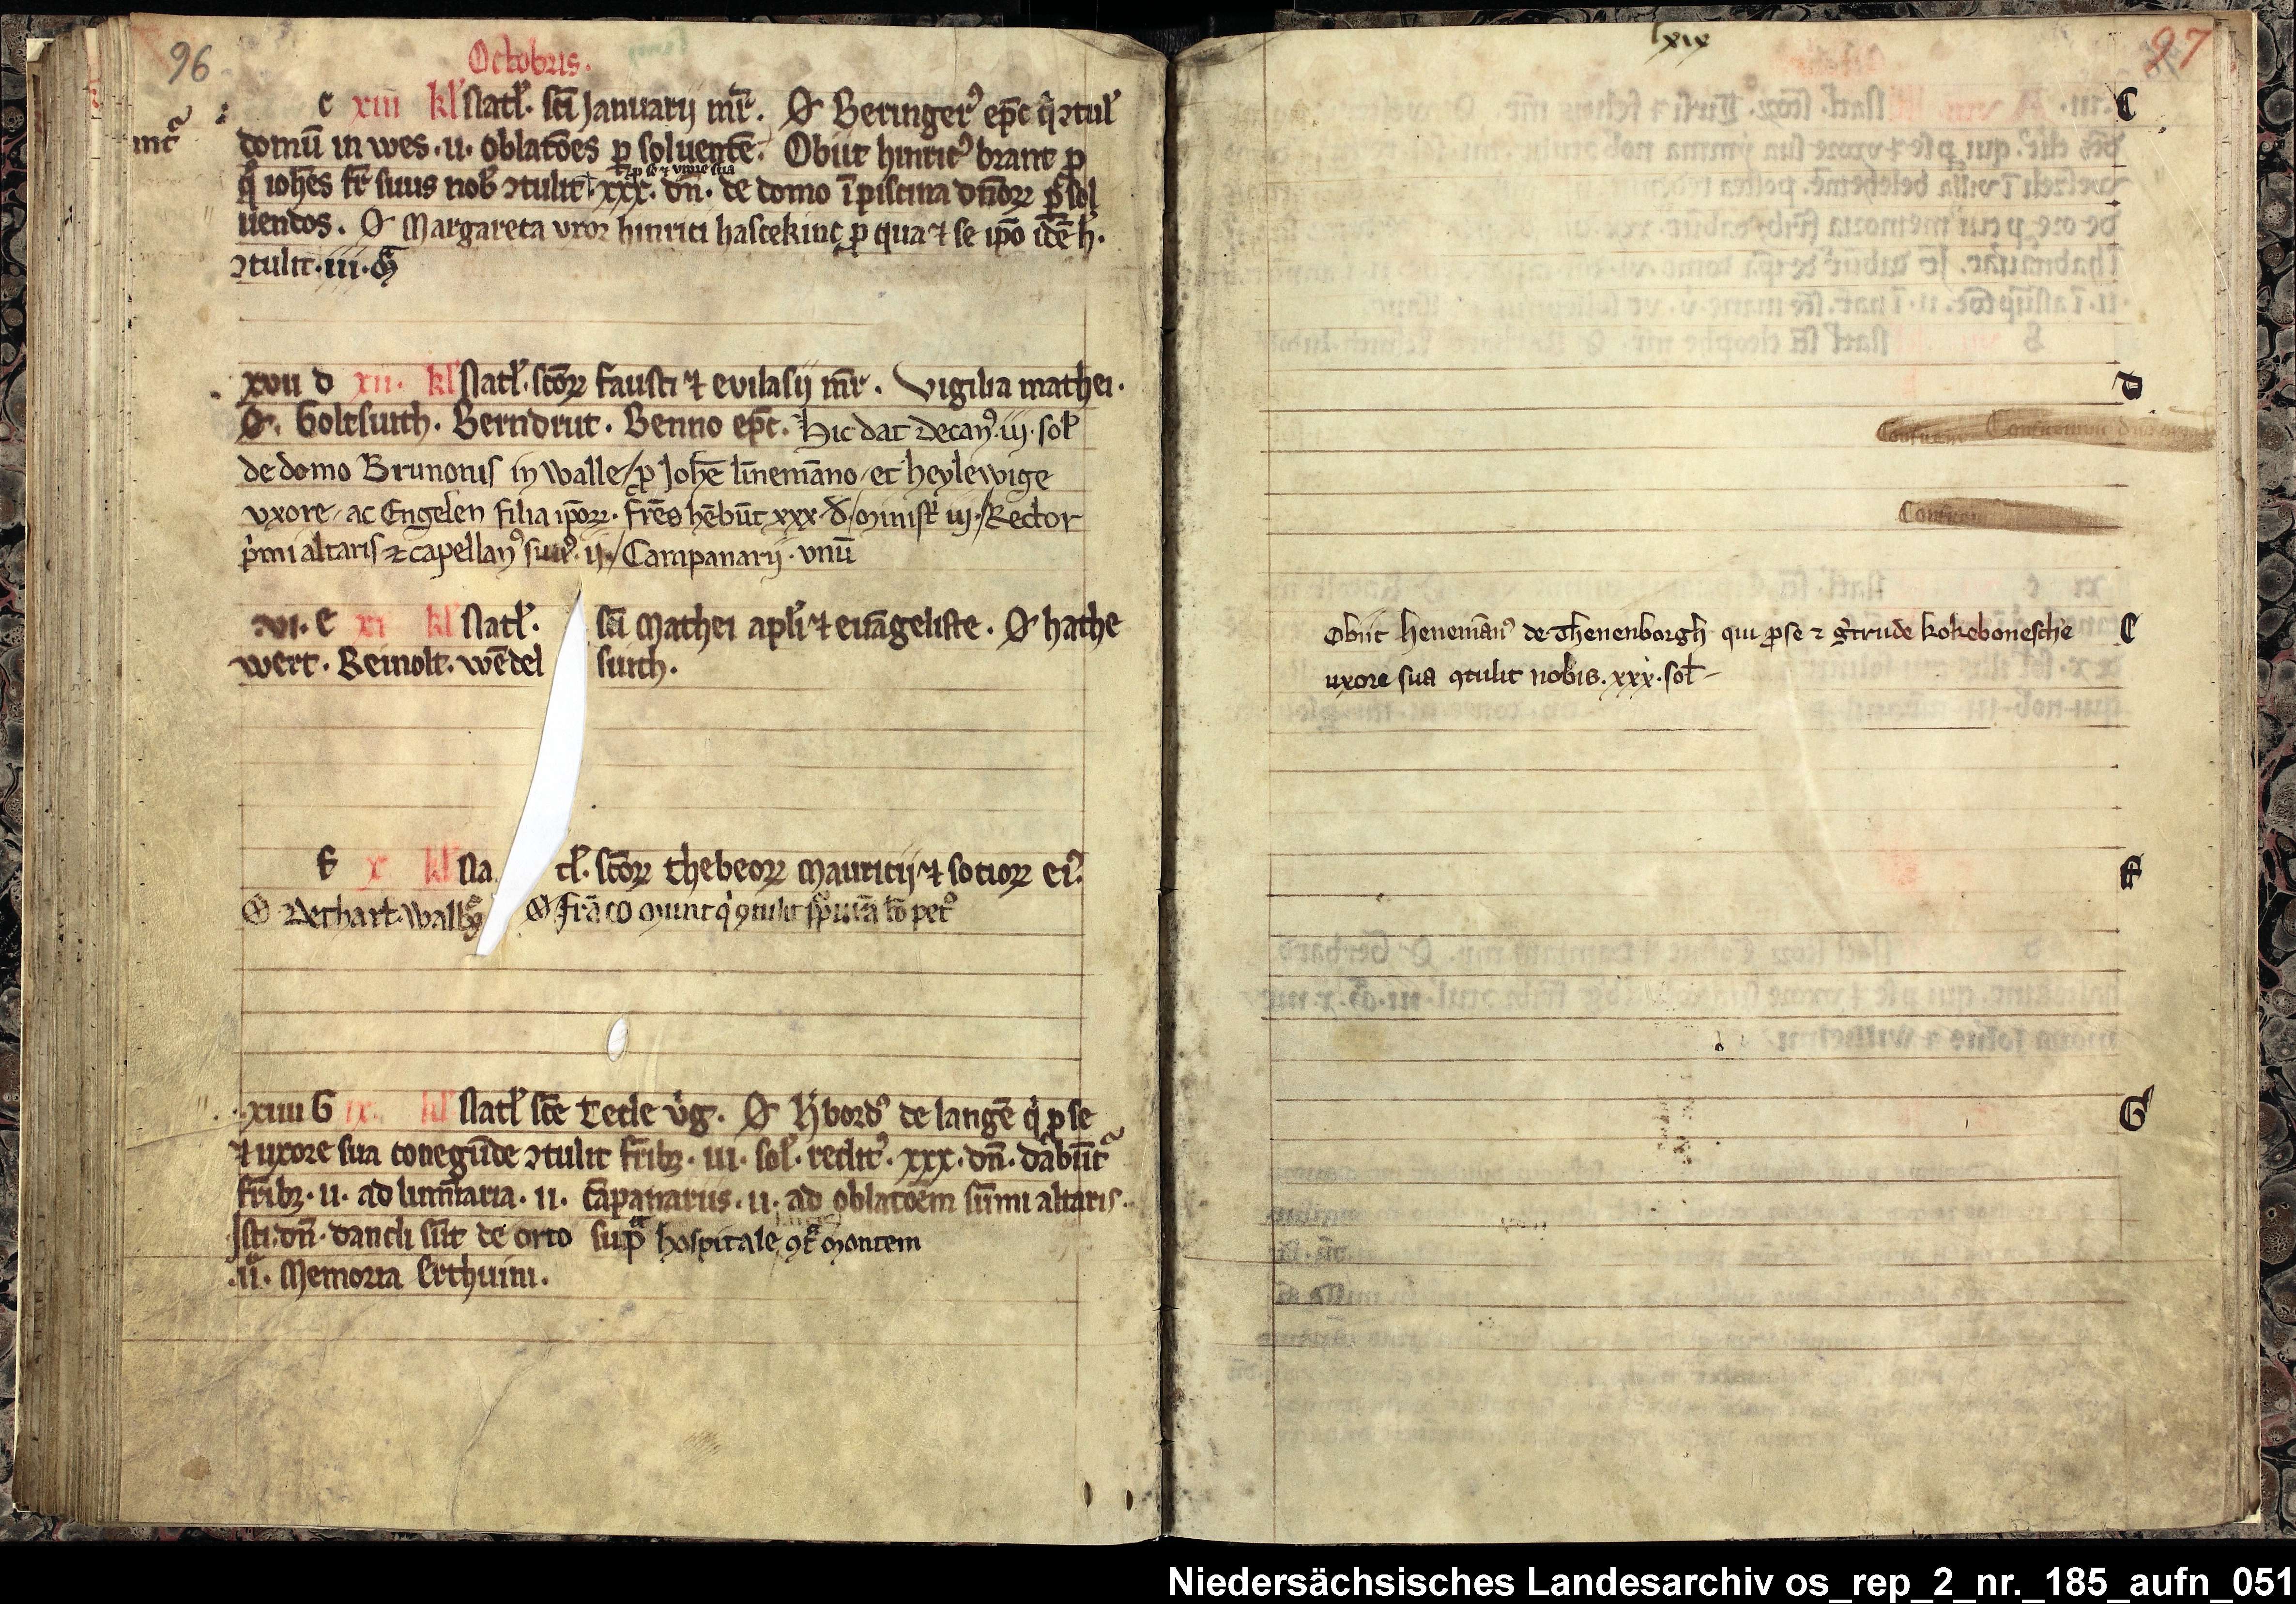 96
Octobris.
c xiii kl' Natl'. sc̄i Januarij mr̄. O' Beringer' ep̄c q' ꝯtul'
domū in wes .ii. oblatōes ꝑ soluentē. Obiit hinric' brant ꝓ
ꝓ se ⁊ uxore sua
q° ioh̄es fr̄ suus nob' ꝯtulit xxx. dn̄. de domo ī piscina dn̄oꝝ ꝑsol
uendos. O' Margareta uxor hinrici hascekinc ꝓ qua ⁊ se ip̄o idē h'.
ꝯtulit .iii. m̄
xvii d xii. kl' Natl'. sc̄oꝝ fausti ⁊ evilasij mr̄. Vigilia mathei.
O'. Goltsuith. Berndrut. Benno ep̄c. Hic dat decan' .iij. sol'
de domo Brunonis in walle / ꝓ Joh̄e linemāno / et heylewige
vxore / ac Engelen filia ip̄oꝝ. fr̄es hēbūt xxx d / minist' iij / Rector
p'mi altaris ⁊ capellan' suus .ij. / Campanarij. vnū
vi. e xi kl' Natl'. sc̄i Mathei apl'i ⁊ euāgeliste. O' hathe
wert. Reinolt. wēdel suith.
f x kl' Na tl'. sc̄oꝝ thebeoꝝ Mauricij ⁊ socioꝝ ei'.
xiiii G ix. kl' Natl' sc̄e Tecle v'g. O' h'bord' de langē q' ꝓ se
⁊ uxore sua conegūde ꝯtulit fr̄ibꝫ .iii. sol'. reclit'. xxx. dn̄. dabūt'
fr̄ibꝫ .ii. ad luminaria .ii. cāpanariis .ii. ad oblatoēm sūmi altaris.
Isti dn̄. dandi sūt de orto supª hospitale ꝯtª montem
.ii. Memoria Erthuini.
lxix
97
C
d
C
Obiit henemān' de Thenenborgh qui ꝓ se ⁊ g'trude kokebonesche
uxore sua ꝯtulit nobis. xxx. sol'
F
G
Niedersächsisches Landesarchiv os_rep_2_nr._185_aufn_051